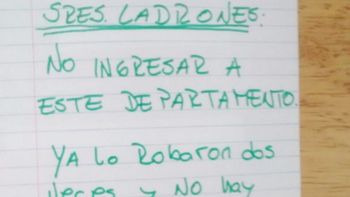 SRES. LADRONES:
NO INGRESAR A
ESTE DEPARTAMENTO.
YA LO ROBARON dos
veces y NO hay